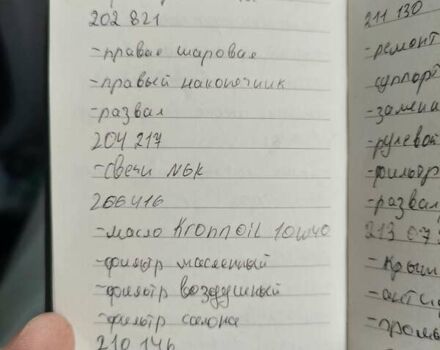 202 821
-правая шаровая
-правый наконечник
-развал
204 217
-свечи NGK
206 416
-масло Kronnoil 10w40
-фильтр масленный
-фильтр воздушный
-фильтр салона
210 146
211 130
-ремонт
суппорт
-замена
-рулевой
-фильтр
-развал
213 07
-крыш